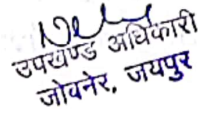 उपखण्ड अधिकारी
जोवनेर, जयपुर